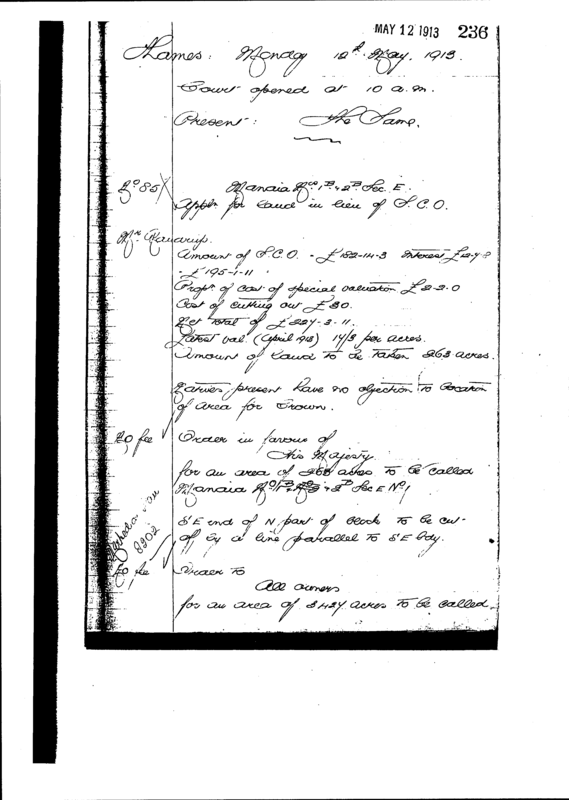 MAY 12 1913 236
Thames: Monday 12th May, 1913.
Court opened at 10 a.m.
Present: The Same.
No 85 Manaia Nos 1B & 2B Sec. E.
Appln for land in lieu of S.C.O.
Amount of S.C.O. - £182-14-3 Interest
- £195-1-11
Propn of cost of special valuation £2-2-0
Cost of cutting out £30.
Net total of £227-3-11.
Latest val. (April 1913) 14/3 per acres.
Amount of land to be taken 263 acres.
Parties present have no objection to location
of area for Crown.
No fee Order in favour of
His Majesty
for an area of acres to be called
Manaia Sec E No 1
S'E end of N. part of block to be cut-
off by a line parallel to S'E bdy.
8902
No fee Order to
All owners
for an area of acres to be called